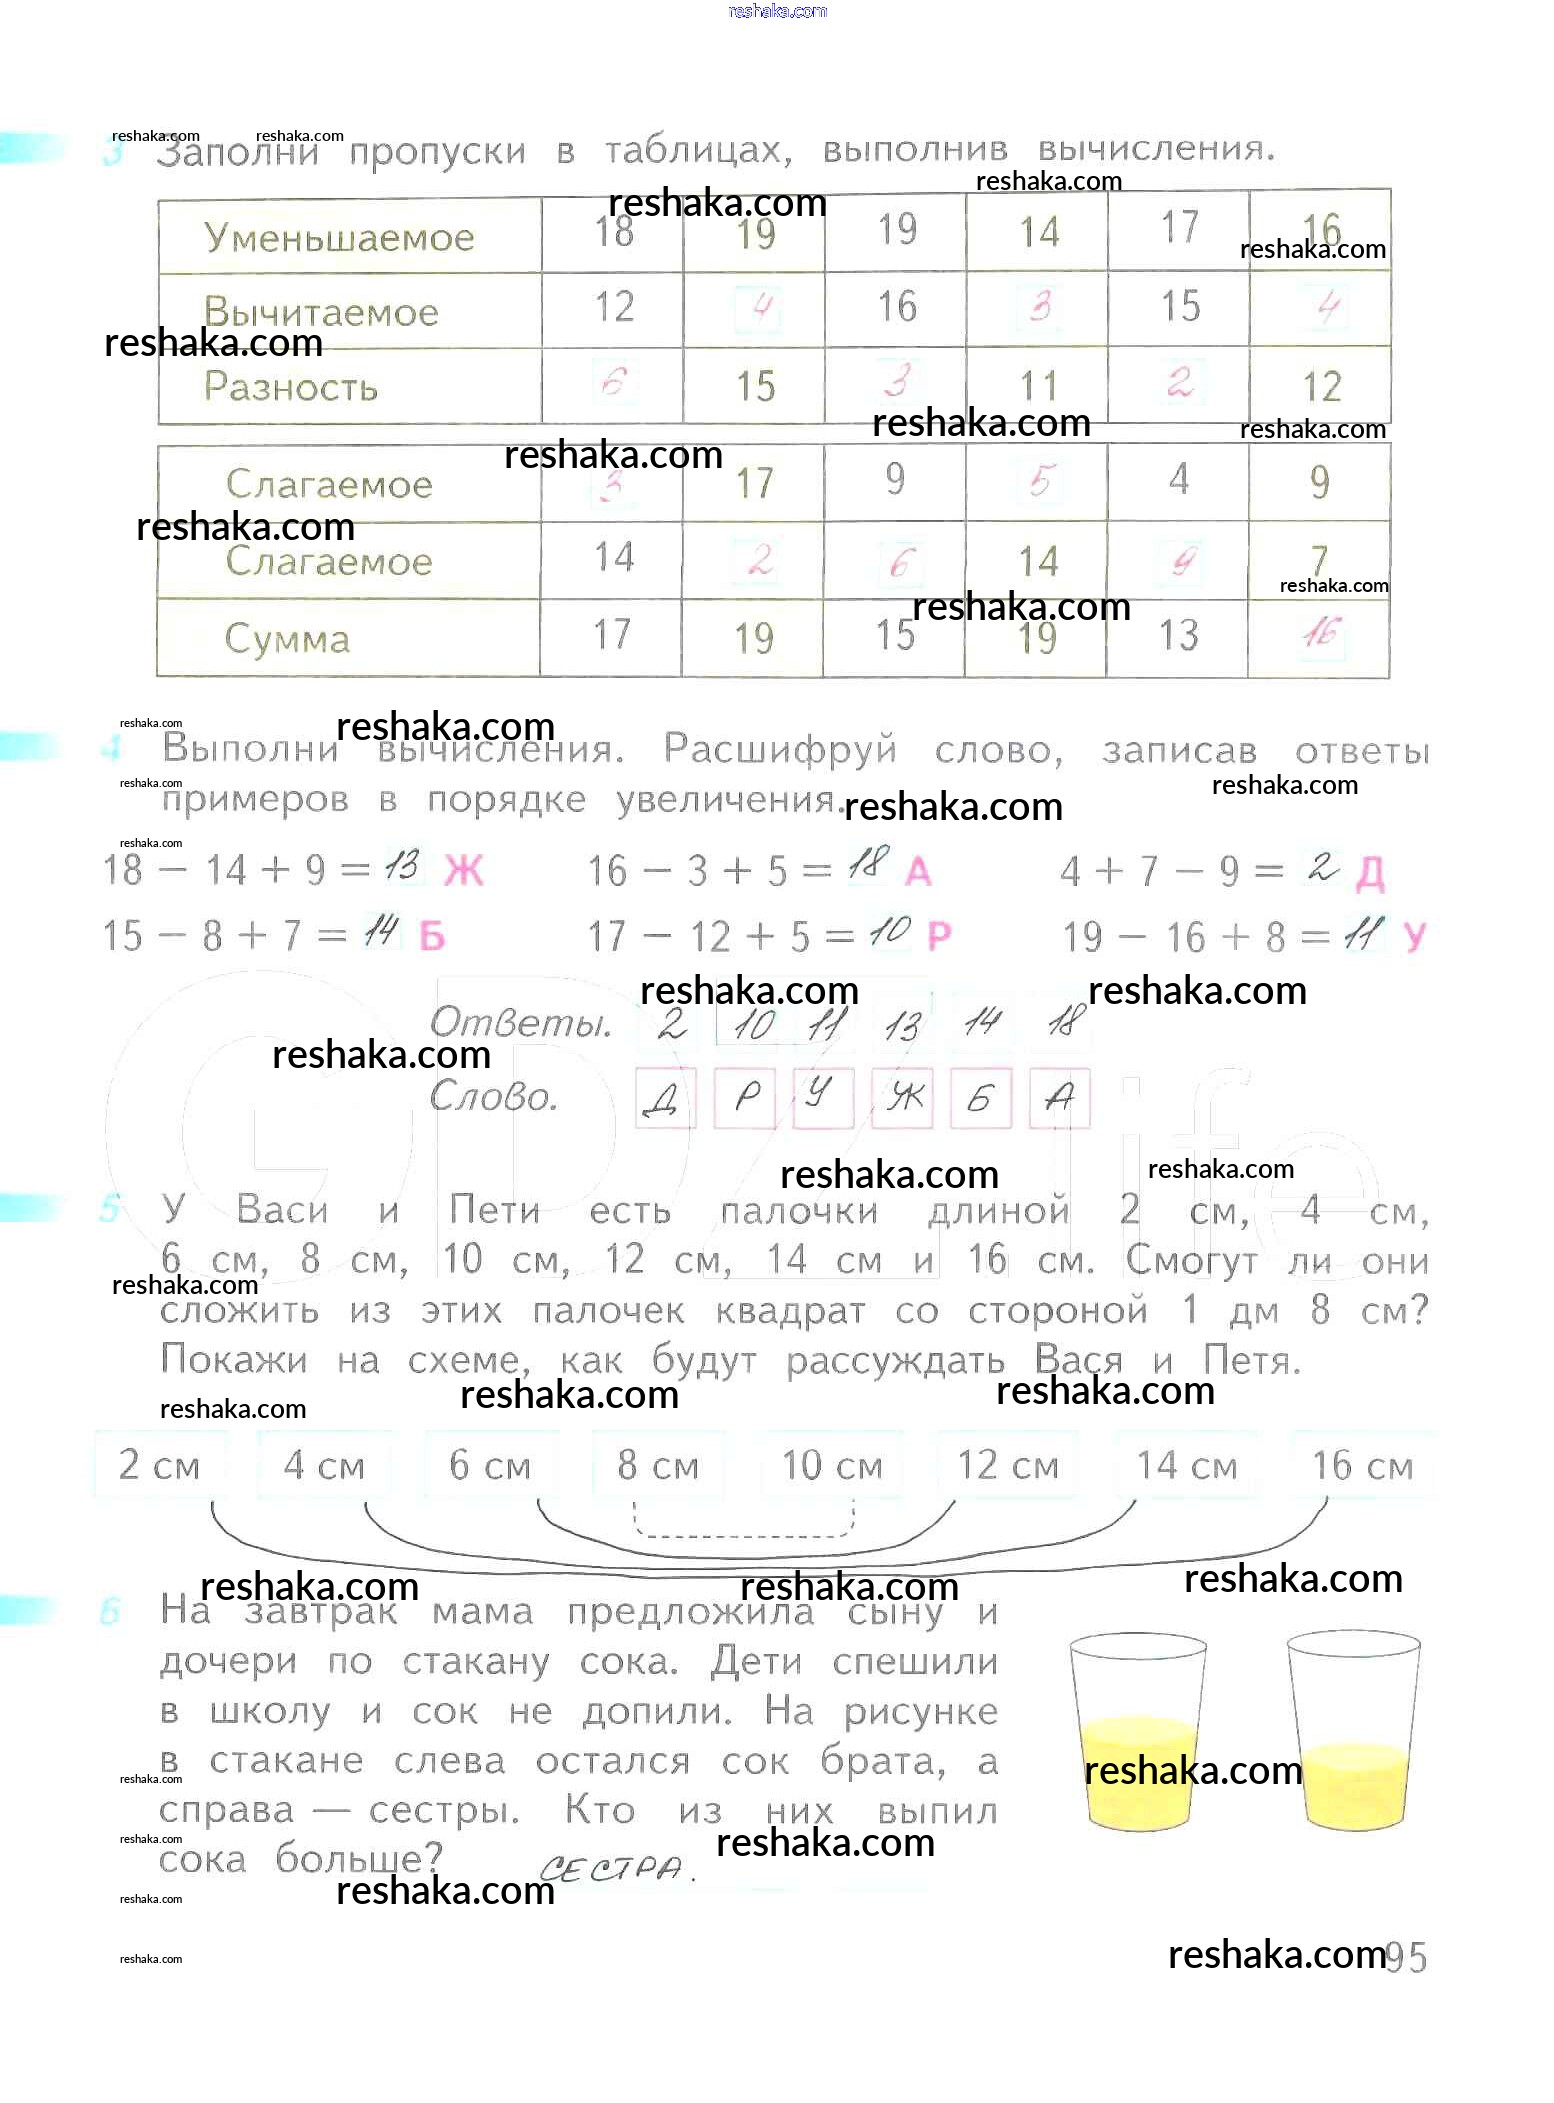 reshaka.com
reshaka.com reshaka.com
3 Заполни пропуски в таблицах, выполнив вычисления.
reshaka.com
reshaka.com
Уменьшаемое 18 19 19 14 17 16
reshaka.com
Вычитаемое 12 4 16 3 15 4
reshaka.com
Разность 6 15 3 11 2 12
reshaka.com reshaka.com
reshaka.com
Слагаемое 3 17 9 5 4 9
reshaka.com
Слагаемое 14 2 6 14 9 7
reshaka.com
reshaka.com
Сумма 17 19 15 19 13 16
reshaka.com reshaka.com
4 Выполни вычисления. Расшифруй слово, записав ответы
reshaka.com reshaka.com
примеров в порядке увеличения.
reshaka.com
reshaka.com
18 − 14 + 9 = 13 Ж 16 − 3 + 5 = 18 А 4 + 7 − 9 = 2 Д
15 − 8 + 7 = 14 Б 17 − 12 + 5 = 10 Р 19 − 16 + 8 = 11 У
reshaka.com reshaka.com
Ответы. 2 10 11 13 14 18
reshaka.com
Слово. Д Р У Ж Б А
GDZ.life
reshaka.com reshaka.com
5 У Васи и Пети есть палочки длиной 2 см, 4 см,
6 см, 8 см, 10 см, 12 см, 14 см и 16 см. Смогут ли они
reshaka.com
сложить из этих палочек квадрат со стороной 1 дм 8 см?
Покажи на схеме, как будут рассуждать Вася и Петя.
reshaka.com reshaka.com reshaka.com
2 см 4 см 6 см 8 см 10 см 12 см 14 см 16 см
reshaka.com reshaka.com reshaka.com
6 На завтрак мама предложила сыну и
дочери по стакану сока. Дети спешили
в школу и сок не допили. На рисунке
в стакане слева остался сок брата, а
reshaka.com reshaka.com
справа — сестры. Кто из них выпил
reshaka.com reshaka.com
сока больше? СЕСТРА.
reshaka.com reshaka.com
reshaka.com reshaka.com
95